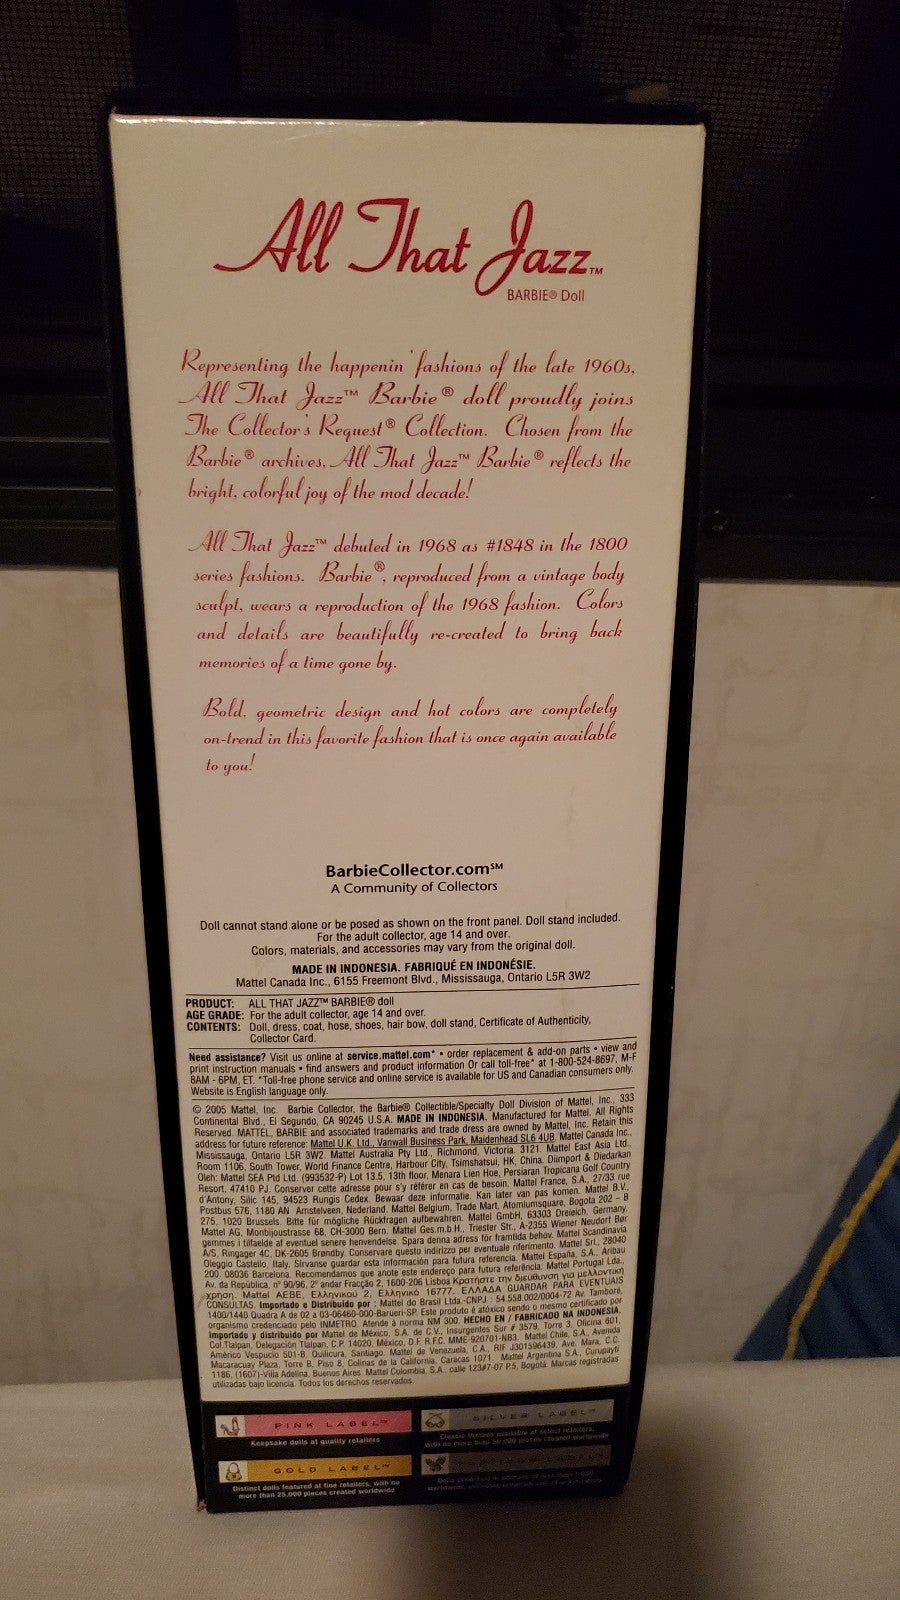 All That Jazz™
BARBIE® Doll
Representing the happenin' fashions of the late 1960s,
All That Jazz™ Barbie® doll proudly joins
The Collector's Request® Collection. Chosen from the
Barbie® archives, All That Jazz™ Barbie® reflects the
bright, colorful joy of the mod decade!
All That Jazz™ debuted in 1968 as #1848 in the 1800
series fashions. Barbie®, reproduced from a vintage body
sculpt, wears a reproduction of the 1968 fashion. Colors
and details are beautifully re-created to bring back
memories of a time gone by.
Bold, geometric design and hot colors are completely
on-trend in this favorite fashion that is once again available
to you!
BarbieCollector.com℠
A Community of Collectors
Doll cannot stand alone or be posed as shown on the front panel. Doll stand included.
For the adult collector, age 14 and over.
Colors, materials, and accessories may vary from the original doll.
MADE IN INDONESIA. FABRIQUÉ EN INDONÉSIE.
Mattel Canada Inc., 6155 Freemont Blvd., Mississauga, Ontario L5R 3W2
PRODUCT: ALL THAT JAZZ™ BARBIE® doll
AGE GRADE: For the adult collector, age 14 and over.
CONTENTS: Doll, dress, coat, hose, shoes, hair bow, doll stand, Certificate of Authenticity,
Collector Card.
Need assistance? Visit us online at service.mattel.com* • order replacement & add-on parts • view and
print instruction manuals • find answers and product information Or call toll-free* at 1-800-524-8697, M-F
8AM - 6PM, ET. *Toll-free phone service and online service is available for US and Canadian consumers only.
Website is English language only.
© 2005 Mattel, Inc. Barbie Collector, the Barbie® Collectible/Specialty Doll Division of Mattel, Inc., 333
Continental Blvd., El Segundo, CA 90245 U.S.A. MADE IN INDONESIA. Manufactured for Mattel. All Rights
Reserved. MATTEL, BARBIE and associated trademarks and trade dress are owned by Mattel, Inc. Retain this
address for future reference: Mattel U.K. Ltd., Vanwall Business Park, Maidenhead SL6 4UB. Mattel Canada Inc.,
Mississauga, Ontario L5R 3W2. Mattel Australia Pty Ltd., Richmond, Victoria. 3121. Mattel East Asia Ltd.,
Room 1106, South Tower, World Finance Centre, Harbour City, Tsimshatsui, HK, China. Diimport & Diedarkan
Oleh: Mattel SEA Ptd Ltd. (993532-P) Lot 13.5, 13th floor, Menara Lien Hoe, Persiaran Tropicana Golf Country
Resort, 47410 PJ. Conserver cette adresse pour s'y référer en cas de besoin. Mattel France, S.A., 27/33 rue
d'Antony, Silic 145, 94523 Rungis Cedex. Bewaar deze informatie. Kan later van pas komen. Mattel B.V.,
Postbus 576, 1180 AN Amstelveen, Nederland. Mattel Belgium, Trade Mart, Atomiumsquare, Bogota 202 - B
275, 1020 Brussels. Bitte für mögliche Rückfragen aufbewahren. Mattel GmbH, 63303 Dreieich, Germany.
Mattel AG, Monbijoustrasse 68, CH-3000 Bern. Mattel Ges.m.b.H., Triester Str., A-2355 Wiener Neudorf Bør
gemmes i tilfælde af eventuel senere henvendelse. Spara denna adress för framtida behov. Mattel Scandinavia
A/S, Ringager 4C, DK-2605 Brøndby. Conservare questo indirizzo per eventuale riferimento. Mattel Srl., 28040
Oleggio Castello, Italy. Sírvanse guardar esta información para futura referencia. Mattel España, S.A., Aribau
200. 08036 Barcelona. Recomendamos que anote este endereço para futura referência. Mattel Portugal Lda.,
Av. da República, nº 90/96, 2º andar Fracção 2, 1600-206 Lisboa Κρατήστε την διεύθυνση για μελλοντική
χρήση. Mattel AEBE, Ελληνικού 2, Ελληνικό 16777. ΕΛΛΑΔΑ GUARDAR PARA EVENTUAIS
CONSULTAS. Importado e Distribuido por : Mattel do Brasil Ltda.-CNPJ : 54.558.002/0004-72 Av. Tamboré,
1400/1440 Quadra A de 02 a 03-06460-000-Barueri-SP. Este produto é atóxico sendo o mesmo certificado por
organismo credenciado pelo INMETRO. Atende à norma NM 300. HECHO EN / FABRICADO NA INDONESIA.
Importado y distribuido por Mattel de México, S.A. de C.V., Insurgentes Sur # 3579, Torre 3, Oficina 601,
Col.Tlalpan, Delegación Tlalpan, C.P. 14020, México, D.F. R.F.C. MME-920701-NB3. Mattel Chile, S.A., Avenida
Américo Vespucio 501-B, Quilicura, Santiago. Mattel de Venezuela, C.A., RIF J301596439, Ave. Mara, C.C.
Macaracuay Plaza, Torre B, Piso 8, Colinas de la California, Caracas 1071. Mattel Argentina S.A., Curupayti
1186, (1607)-Villa Adelina, Buenos Aires. Mattel Colombia, S.A., calle 123#7-07 P.5, Bogotá. Marcas registradas
utilizadas bajo licencia. Todos los derechos reservados.
PINK LABEL™
Keepsake dolls at quality retailers
SILVER LABEL™
Classic themes available at select retailers,
with no more than 50,000 pieces created worldwide
GOLD LABEL™
Distinct dolls featured at fine retailers, with no
more than 25,000 pieces created worldwide
PLATINUM LABEL™